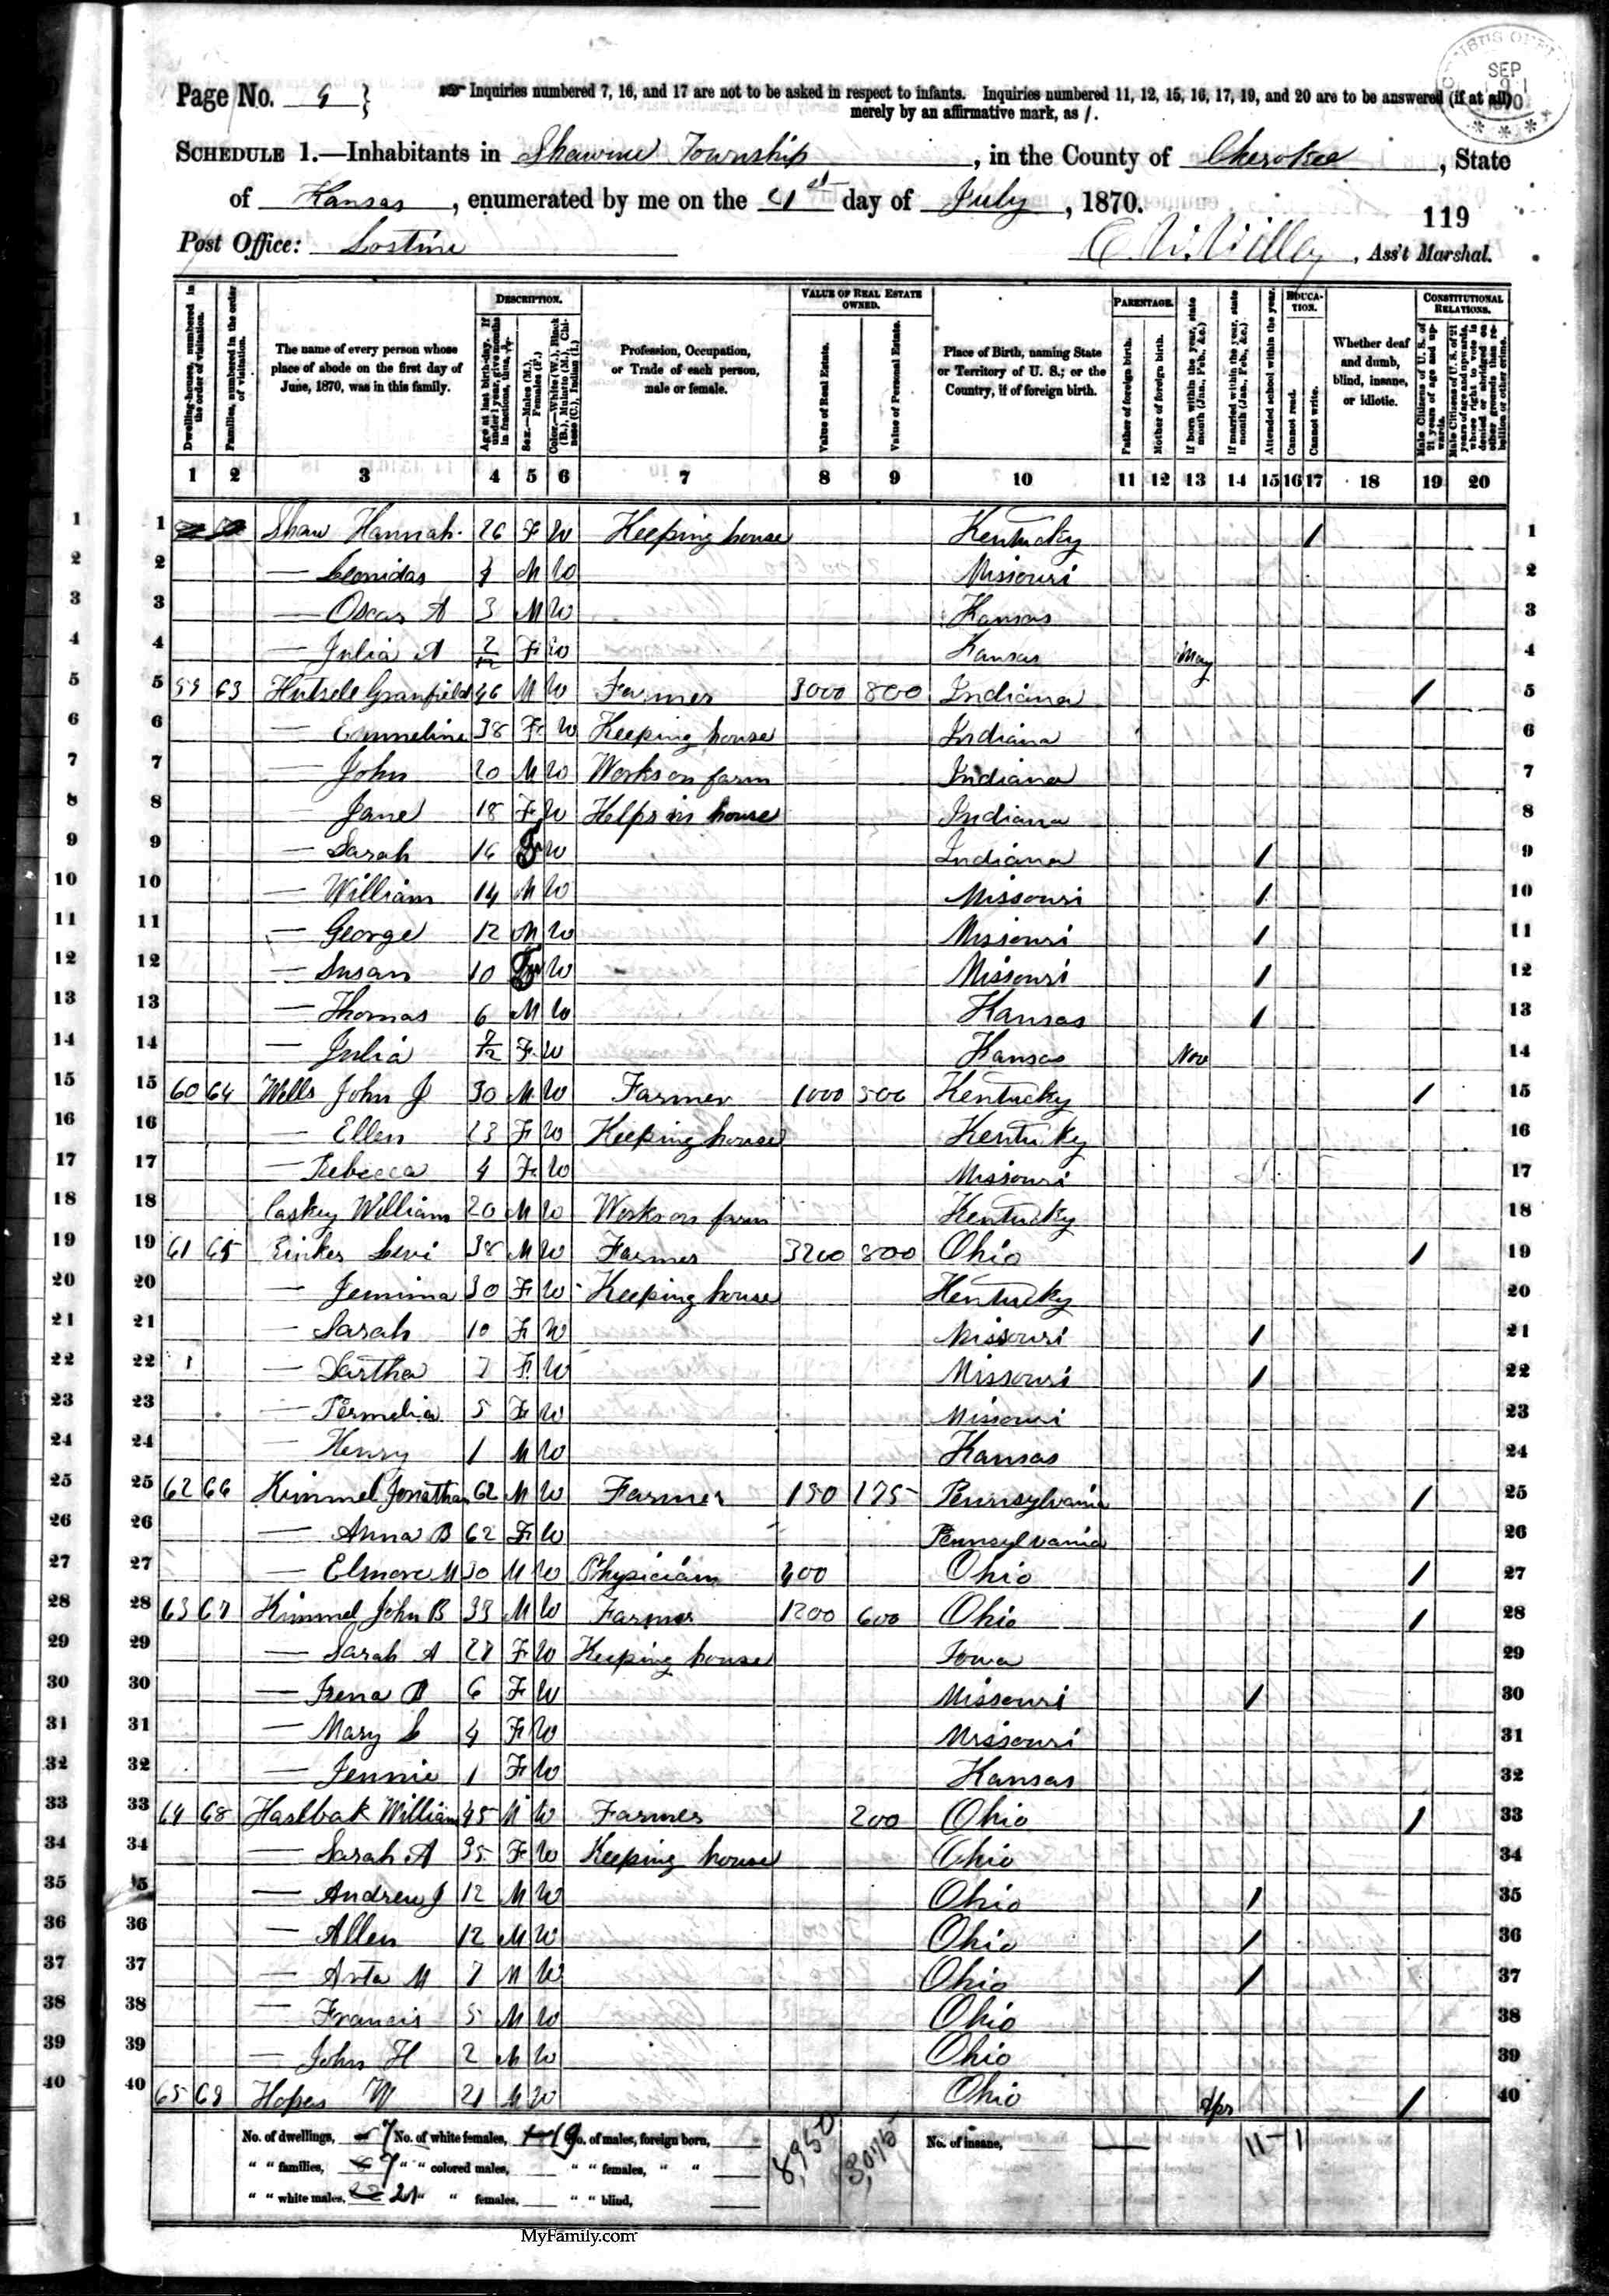 Page No. 9 }
Inquiries numbered 7, 16, and 17 are not to be asked in respect to infants. Inquiries numbered 11, 12, 15, 16, 17, 19, and 20 are to be answered (if at all) merely by an affirmative mark, as /.
SEP
1870
SCHEDULE 1.—Inhabitants in Shawnee Township, in the County of Cherokee, State
of Kansas, enumerated by me on the 21st day of July, 1870.
119
Post Office: Lostine
, Ass't Marshal.
Dwelling-houses, numbered in the order of visitation.
Families, numbered in the order of visitation.
The name of every person whose place of abode on the first day of June, 1870, was in this family.
DESCRIPTION.
Age at last birth-day. If under 1 year, give months in fractions, thus,
Sex.—Males (M.), Females (F.)
Color.—White (W.), Black (B.), Mulatto (M.), Chinese (C.), Indian (I.)
Profession, Occupation, or Trade of each person, male or female.
VALUE OF REAL ESTATE OWNED.
Value of Real Estate.
Value of Personal Estate.
Place of Birth, naming State or Territory of U. S.; or the Country, if of foreign birth.
PARENTAGE.
Father of foreign birth.
Mother of foreign birth.
If born within the year, state month (Jan., Feb., &c.)
If married within the year, state month (Jan., Feb., &c.)
Attended school within the year.
EDUCATION.
Cannot read.
Cannot write.
Whether deaf and dumb, blind, insane, or idiotic.
CONSTITUTIONAL RELATIONS.
Male Citizens of U. S. of 21 years of age and upwards.
Male Citizens of U. S. of 21 years of age and upwards, whose right to vote is denied or abridged on other grounds than rebellion or other crime.
1 2 3 4 5 6 7 8 9 10 11 12 13 14 15 16 17 18 19 20
1 Shaw Hannah 26 F W Keeping house Kentucky / 1
2 — Leonidas M W Missouri 2
3 — Oscar A 3 M W Kansas 3
4 — Julia A 2/12 F W Kansas May 4
5 59 63 Hutsele Granfield 46 M W Farmer 3000 800 Indiana / 5
6 — Emmeline 38 F W Keeping house Indiana 6
7 — John 20 M W Works on farm Indiana 7
8 — Jane 18 F W Helps in house Indiana 8
9 — Sarah 16 F W Indiana / 9
10 — William 14 M W Missouri / 10
11 — George 12 M W Missouri / 11
12 — Susan 10 F W Missouri / 12
13 — Thomas 6 M W Kansas / 13
14 — Julia 7/12 F W Kansas Nov 14
15 60 64 Wells John J 30 M W Farmer 1000 500 Kentucky / 15
16 — Ellen 23 F W Keeping house Kentucky 16
17 — Rebecca 4 F W Missouri 17
18 Caskey William 20 M W Works on farm Kentucky 18
19 61 65 Levi 38 M W Farmer 3200 800 Ohio / 19
20 — Jemima 30 F W Keeping house Kentucky 20
21 — Sarah 10 F W Missouri / 21
22 — 7 F W Missouri / 22
23 — Permelia 5 F W Missouri 23
24 — Henry 1 M W Kansas 24
25 62 66 Kimmel Jonathan 62 M W Farmer 150 175 Pennsylvania / 25
26 — Anna B 62 F W Pennsylvania 26
27 — Elmore M 30 M W Physician 400 Ohio / 27
28 63 67 Kimmel John B 33 M W Farmer 1200 600 Ohio / 28
29 — Sarah A 27 F W Keeping house Iowa 29
30 — Irena 6 F W Missouri / 30
31 — Mary 4 F W Missouri 31
32 — Jennie 1 F W Kansas 32
33 64 68 Haslbak William 45 M W Farmer 200 Ohio / 33
34 — Sarah A 35 F W Keeping house Ohio 34
35 — Andrew J 12 M W Ohio / 35
36 — Allen 12 M W Ohio / 36
37 — M 7 M W Ohio / 37
38 — Francis 5 M W Ohio 38
39 — John H 2 M W Ohio 39
40 65 69 Hopes W 21 M W Ohio Apr / 40
No. of dwellings, 7 No. of white females, 19 No. of males, foreign born, 8,950 3,075 No. of insane, 11 – 1
" " families, 7 " " colored males, " " females, " "
" " white males, 21 " " females, " " blind,
MyFamily.com